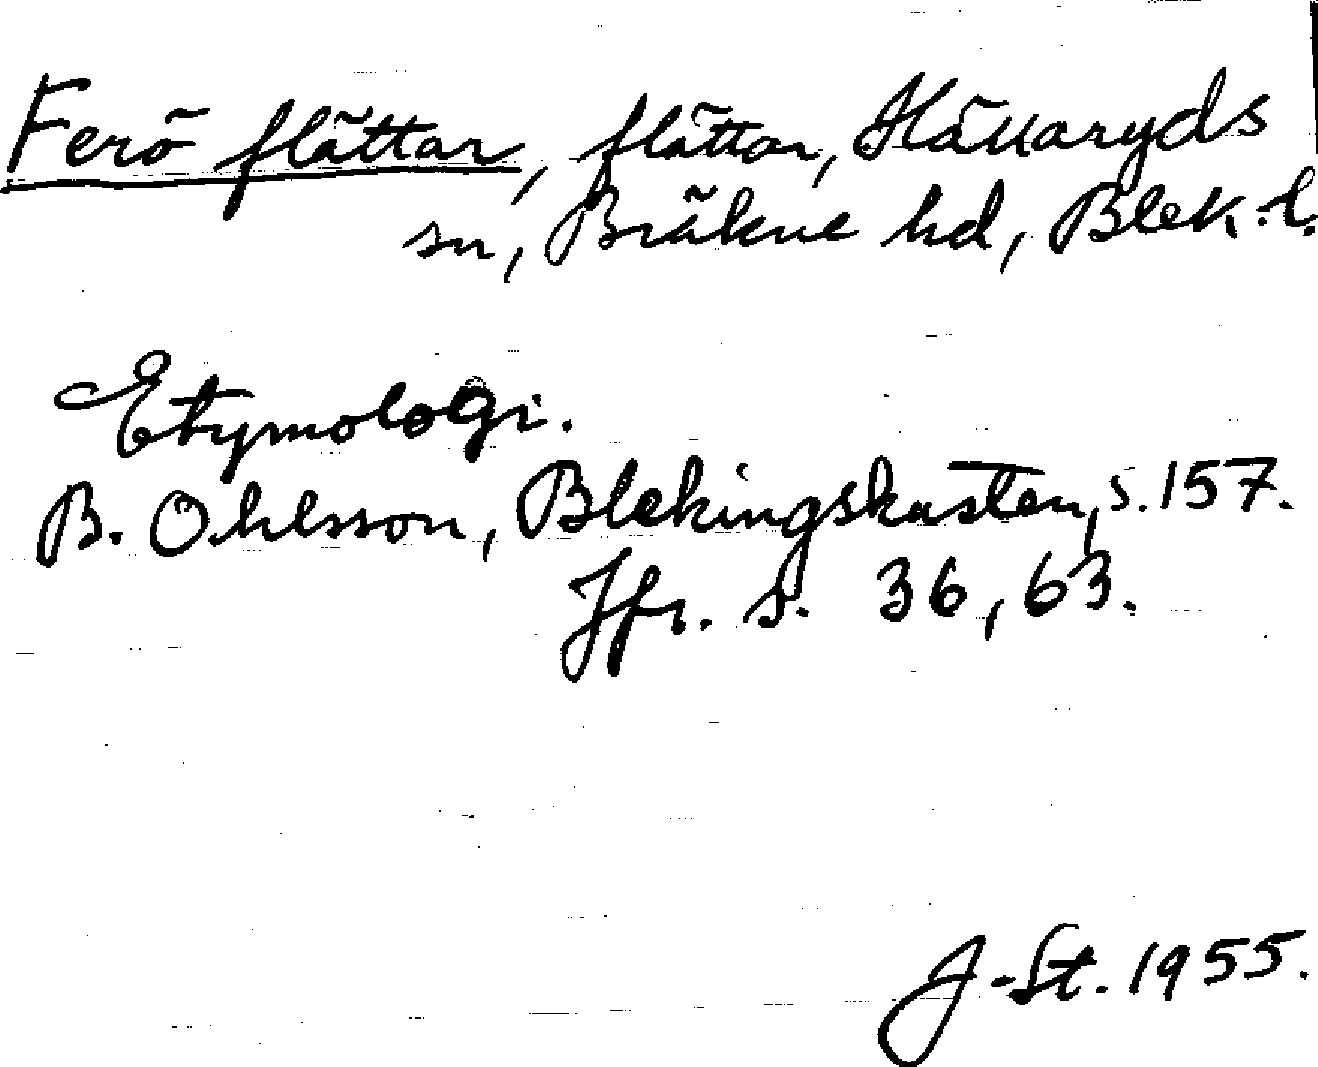 Ferö flättar, flättar, Hällaryds
sn, Bräkne hd, Blek. l.
Etymologi.
B. Ohlsson, Blekingskusten, s. 157.
Jfr. s. 36, 63.
J-St. 1955.